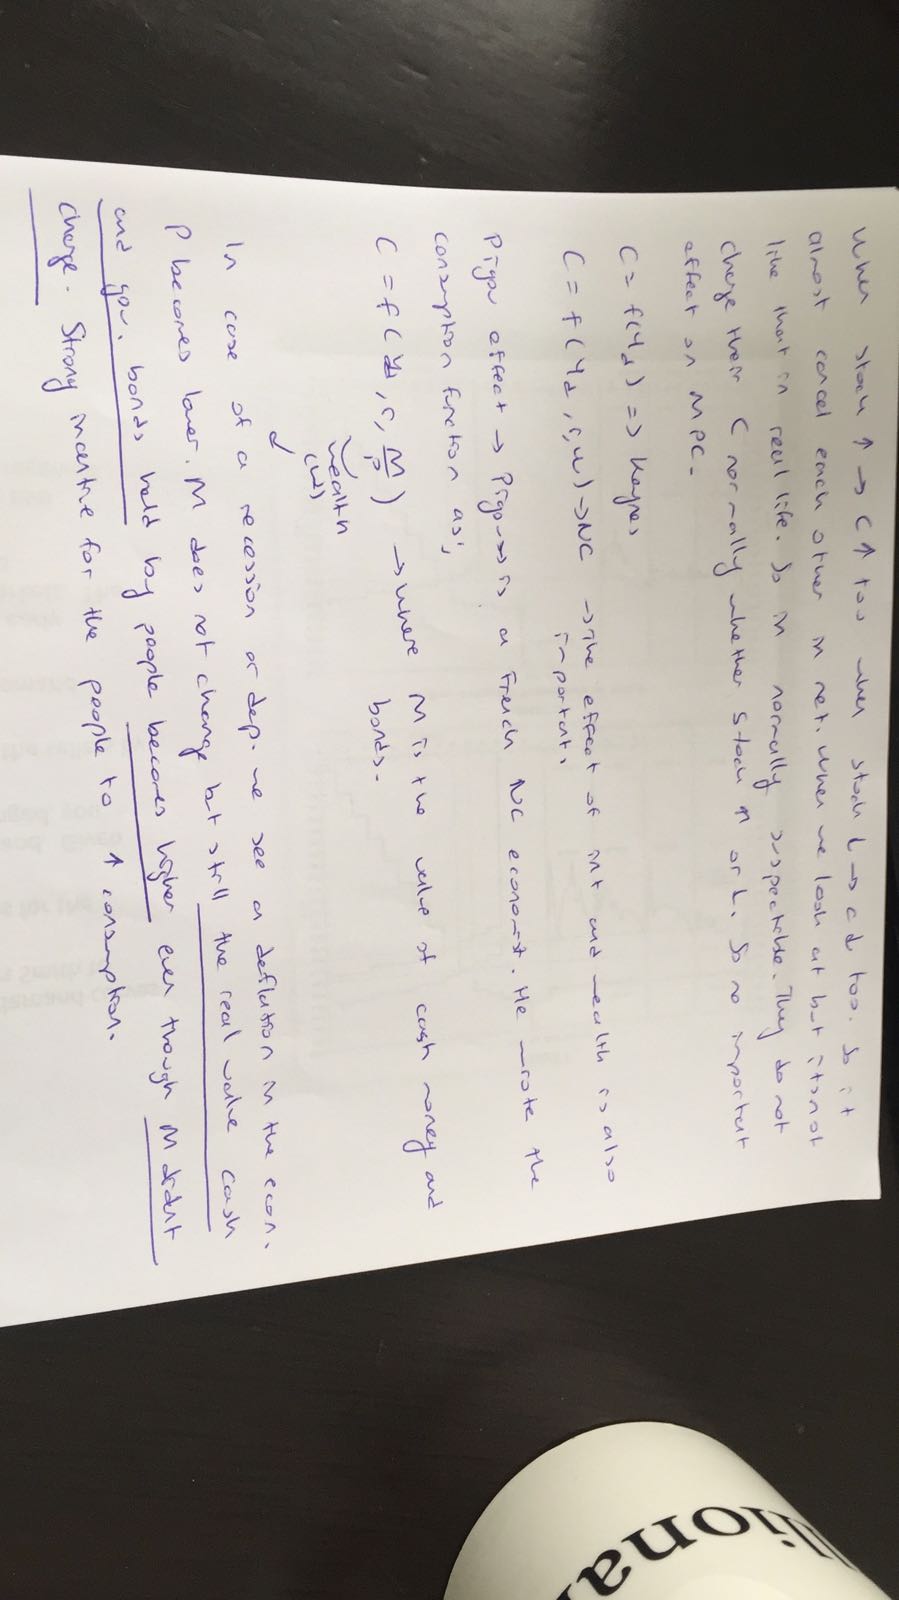 when stock ↑ → C ↑ too when stock ↓ → c ↓ too. So it
almost cancel each other in net. when we look at but its not
like that in real life. So in normally They do not
change their C normally whether stock ↑ or ↓. So no important
effect on MPC.
C = f(Yd) => Keynes
C = f(Yd, r, w) → NC → The effect of int and wealth is also
important.
Pigou effect → Pigou is a French NC economist. He wrote the
consumption function as;
C = f(Yd, r, M/P) → where M is the value of cash money and
bonds.
wealth
(W)
In case of a recession or dep. we see a deflation in the econ.
P becomes lower. M does not change but still the real value cash
and gov. bonds held by people becomes higher even though M didnt
change. Strong incentive for the people to ↑ consumption.
diona